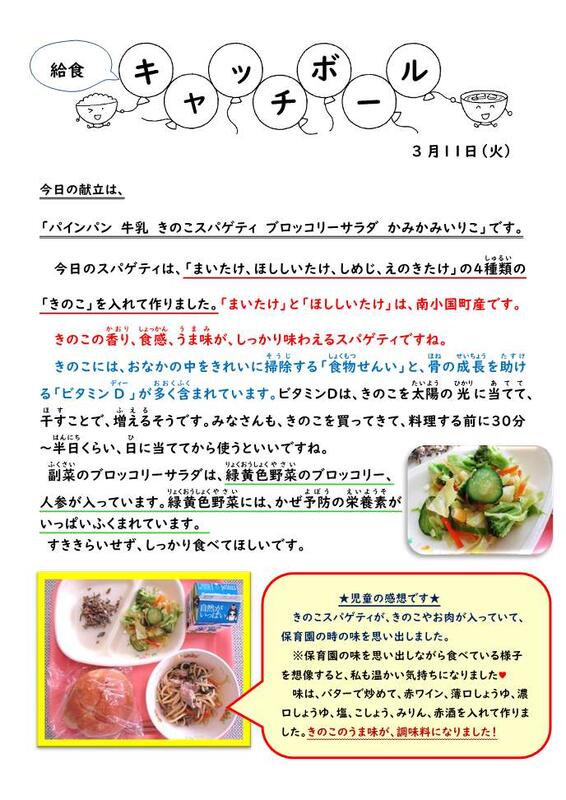 給食
キャッチボール
3月11日（火）
今日の献立は、
「パインパン 牛乳 きのこスパゲティ ブロッコリーサラダ かみかみいりこ」です。
今日のスパゲティは、「まいたけ、ほししいたけ、しめじ、えのきたけ」の4種類の
「きのこ」を入れて作りました。「まいたけ」と「ほししいたけ」は、南小国町産です。
きのこの香り、食感、うま味が、しっかり味わえるスパゲティですね。
きのこには、おなかの中をきれいに掃除する「食物せんい」と、骨の成長を助け
る「ビタミンD」が多く含まれています。ビタミンDは、きのこを太陽の光に当てて、
干すことで、増えるそうです。みなさんも、きのこを買ってきて、料理する前に30分
～半日くらい、日に当ててから使うといいですね。
副菜のブロッコリーサラダは、緑黄色野菜のブロッコリー、
人参が入っています。緑黄色野菜には、かぜ予防の栄養素が
いっぱいふくまれています。
すききらいせず、しっかり食べてほしいです。
★児童の感想です★
きのこスパゲティが、きのこやお肉が入っていて、
保育園の時の味を思い出しました。
※保育園の味を思い出しながら食べている様子
を想像すると、私も温かい気持ちになりました♥
味は、バターで炒めて、赤ワイン、薄口しょうゆ、濃
口しょうゆ、塩、こしょう、みりん、赤酒を入れて作りま
した。きのこのうま味が、調味料になりました！
自然が
いっぱい